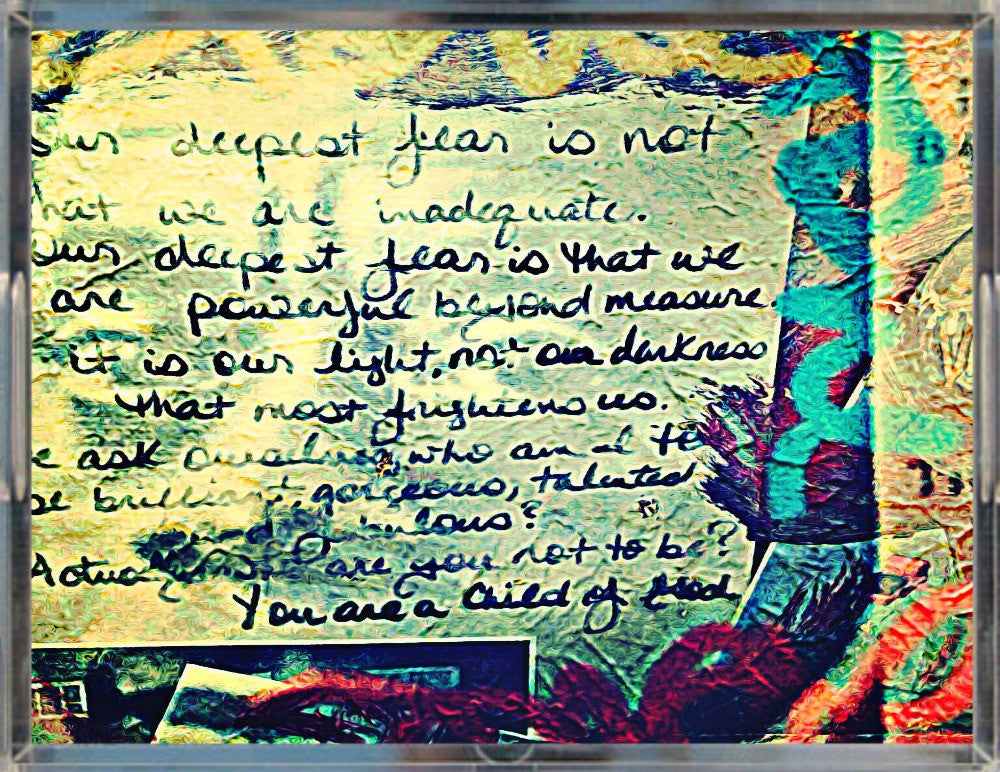 Our deepest fear is not
that we are inadequate.
Our deepest fear is that we
are powerful beyond measure.
it is our light, not our darkness
that most frightens us.
ask ourselves, who am I to
be brilliant, gorgeous, talented
and fabulous?
Actually who are you not to be?
You are a Child of God